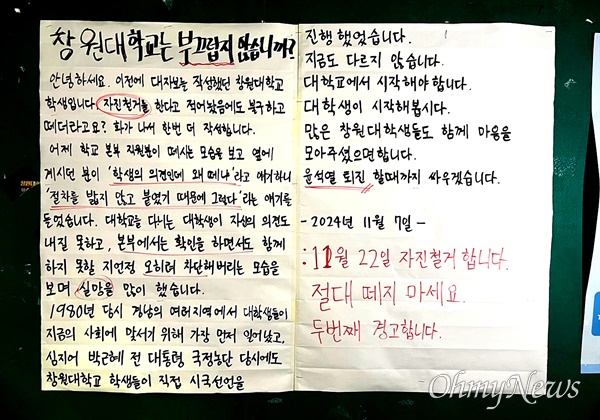 창원대학교는 부끄럽지 않습니까?
안녕하세요. 이전에 대자보를 작성했던 창원대학교
학생입니다. 자진철거를 한다고 적어놨음에도 불구하고
떼더라고요? 화가 나서 한번 더 작성합니다.
어제 학교 본부 직원분이 떼시는 모습을 보고 옆에
계시던 분이 '학생의 의견인데 왜 떼냐'라고 얘기하니
'절차를 밟지 않고 붙였기 때문에 그렇다' 라는 얘기를
들었습니다. 대학교를 다니는 대학생이 자신의 의견도
내질 못하고, 본부에서는 확인을 하면서도 함께
하지 못할 지언정 오히려 차단해버리는 모습을
보며 실망을 많이 했습니다.
1980년 당시 경남의 여러지역에서 대학생들이
지금의 사회에 맞서기 위해 가장 먼저 일어났고,
심지어 박근혜 전 대통령 국정농단 당시에도
창원대학교 학생들이 직접 시국선언을
진행 했었습니다.
지금도 다르지 않습니다.
대학교에서 시작해야합니다.
대학생이 시작해봅시다.
많은 창원대학생들도 함께 마음을
모아주셨으면합니다.
윤석열 퇴진 할때까지 싸우겠습니다.
- 2024년 11월 7일 -
: 11월 22일 자진철거 합니다.
절대 떼지 마세요.
두번째 경고합니다.
OhmyNews